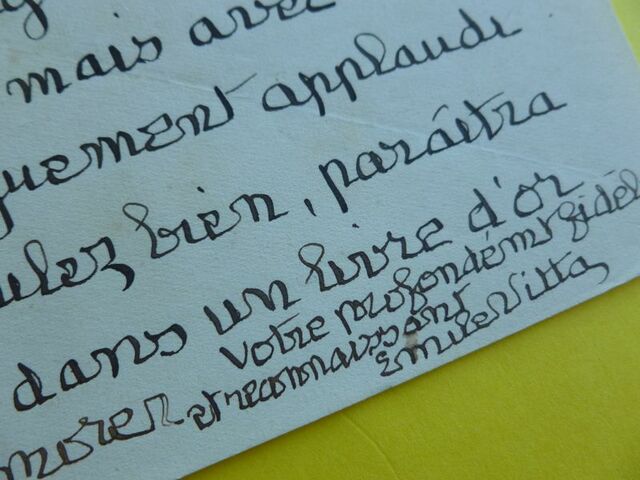 mais avec
quement applaudi
ulez bien, paraîtra
dans un livre d'or
votre profondément fidèl
et reconnaissant
Emile Vitta